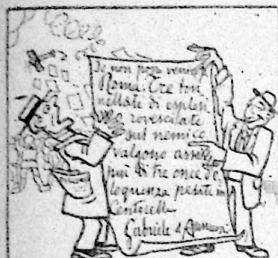 Io non posso
Roma: Tre ton
nellate di esplosi
rovesciate
sul nemico
valgono assai
più di tre once de
loquenza pesate in
Gabriele d'Annunzio